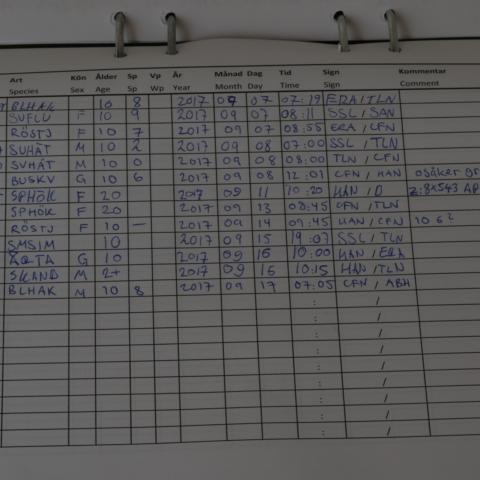 Art Kön Ålder Sp Vp År Månad Dag Tid Sign Kommentar
Species Sex Age Sp Wp Year Month Day Time Sign Comment
BLHAK 10 8 2017 09 07 07:19 ERA/TLN
SVFLU F 10 9 2017 09 07 08:11 SSL/SAN
RÖSTJ F 10 7 2017 09 07 08:55 ERA/CFN
SVHÄT M 10 2 2017 09 08 07:00 SSL/TLN
SVHÄT M 10 0 2017 09 08 08:00 TLN/CFN
BUSKV G 10 6 2017 09 08 12:01 CFN/HAN osäker
SPHÖK F 20 2017 09 11 10:20 HAN/D
SPHÖK F 20 2017 09 13 08:45 CFN/TLN
RÖSTJ F 10 – 2017 09 14 09:45 HAN/CFN 10 6?
SMSIM 10 2017 09 15 19:07 SSL/TLN
ÄRTA G 10 2017 09 16 10:00 HAN/ERA
SKAND M 2+ 2017 09 16 10:15 HAN/TLN
BLHAK M 10 8 2017 09 17 07:05 CFN/ABH
: /
: /
: /
: /
: /
: /
: /
: /